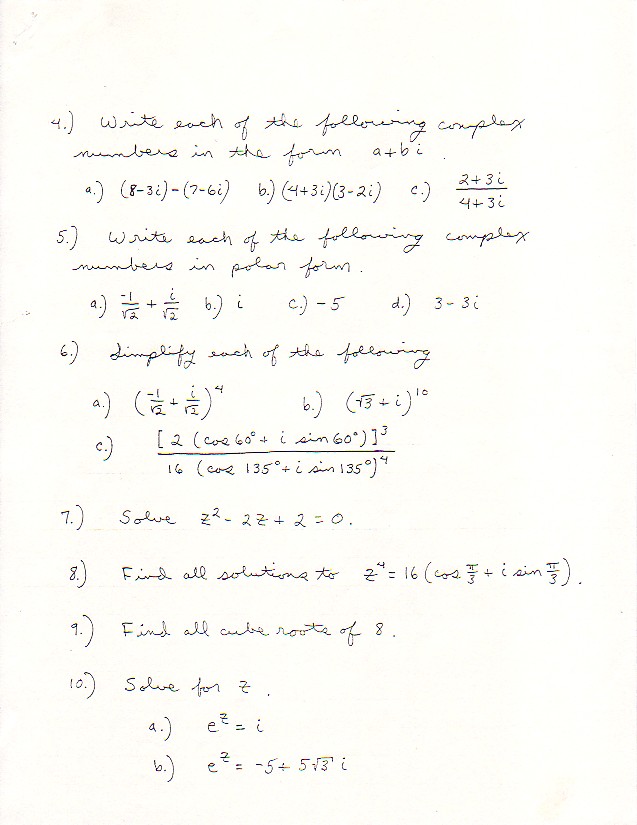 4.) Write each of the following complex
numbers in the form a+bi.
a.) (8-3i)-(7-6i) b.) (4+3i)(3-2i) c.) (2+3i)/(4+3i)
5.) Write each of the following complex
numbers in polar form.
a.) -1/√2 + i/√2 b.) i c.) -5 d.) 3-3i
6.) Simplify each of the following
a.) (-1/√2 + i/√2)^4 b.) (√3 + i)^10
c.) [2 (cos 60° + i sin 60°)]^3 / 16 (cos 135° + i sin 135°)^4
7.) Solve z² - 2z + 2 = 0.
8.) Find all solutions to z⁴ = 16 (cos π/3 + i sin π/3).
9.) Find all cube roots of 8.
10.) Solve for z.
a.) e^z = i
b.) e^z = -5 + 5√3 i